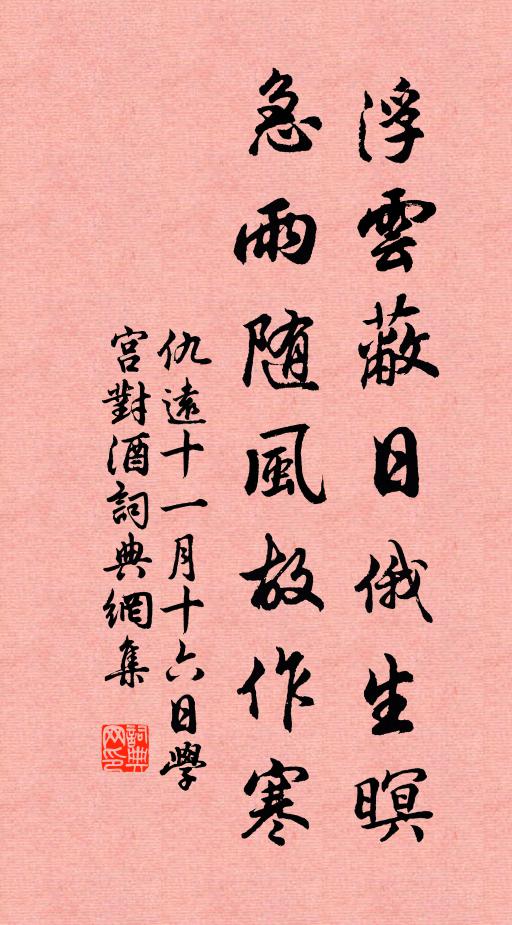 浮雲蔽日俄生暝
急雨随風故作寒
仇遠十一月十六日學
宮對酒詞典網集
詞典网印